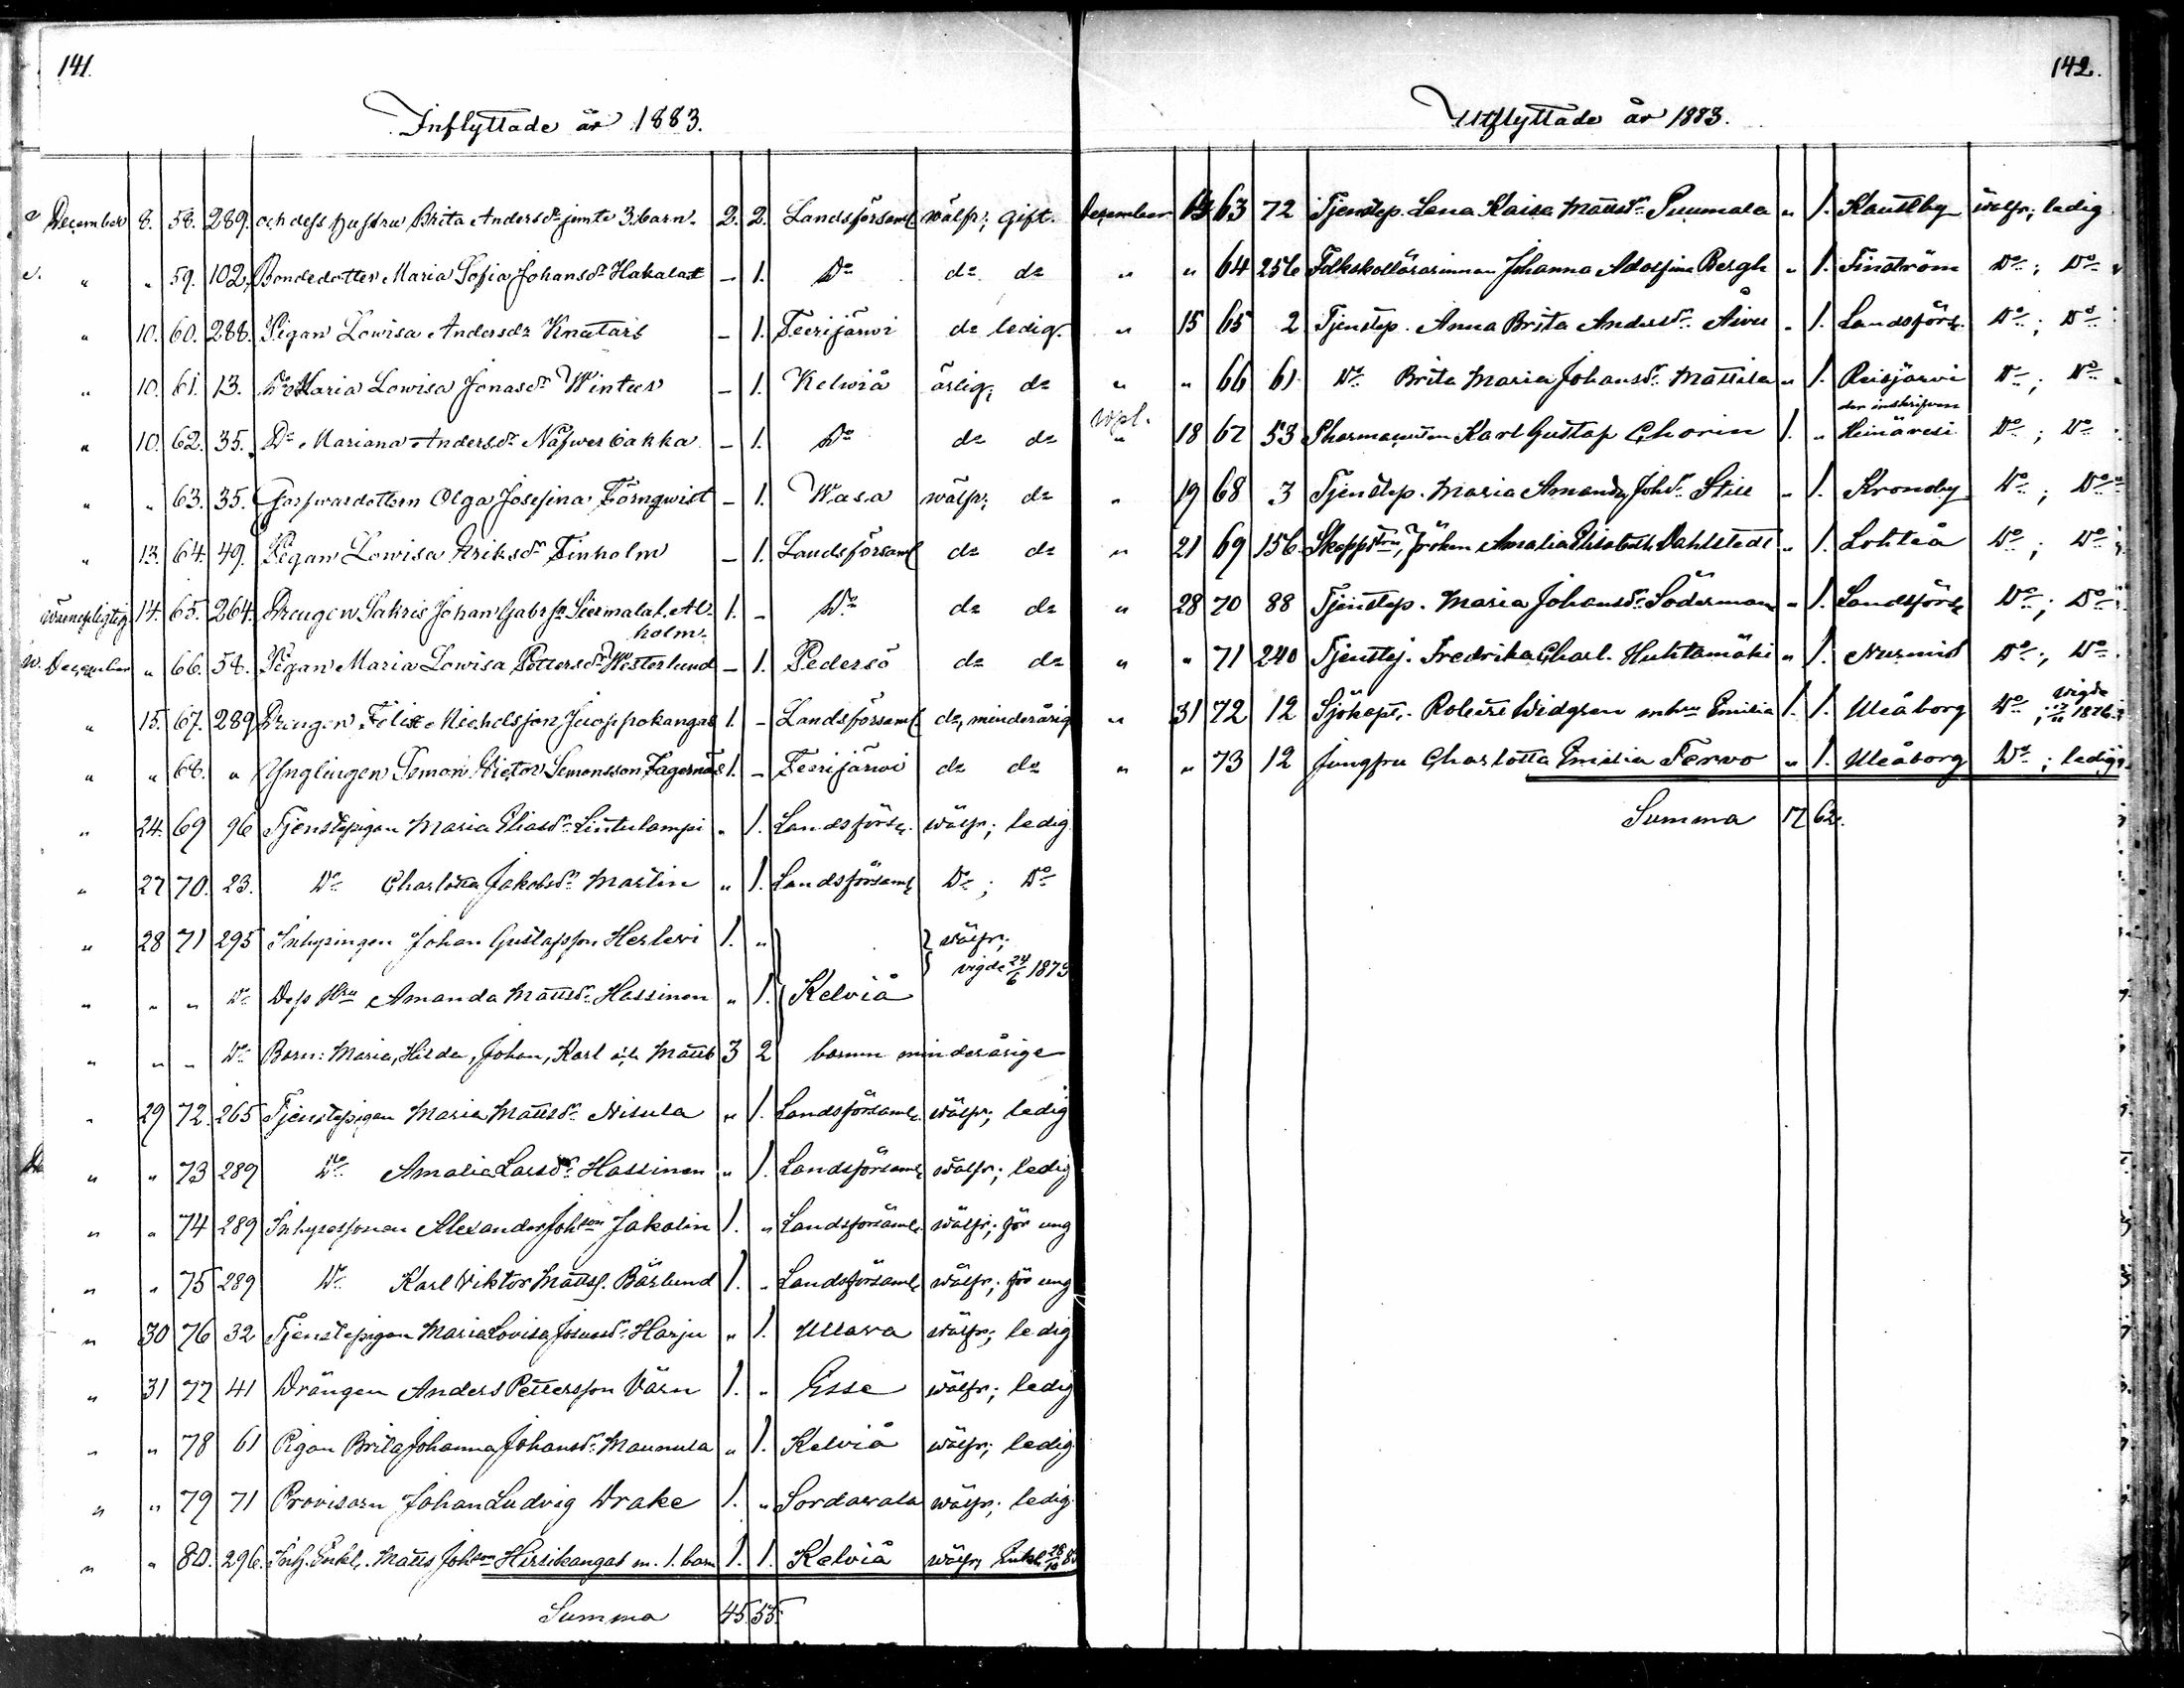 141.
Inflyttade år 1883.
December 8. 58. 289. och dess hustru Brita Andersdr jemte 3 barn. 2. 2. Landsförsaml wälfr; gift.
" " 59. 102. Bondedotter Maria Sofia Johansdr Hakalax - 1. Do do do
" 10. 60. 288. Pigan Lowisa Andersdr Knutars - 1. Teerijärwi do ledig.
" 10. 61. 13. Do Maria Lowisa Jonasdr Winter - 1. Kelwiå ärlig; do
" 10. 62. 35. Do Mariana Andersdr - 1. Do do do
" " 63. 35. Olga Josefina Törnqwist - 1. Wasa wälfr; do
" 13. 64. 49. Pigan Lowisa Eriksdr Finholm - 1. Landsförsaml do do
14. 65. 264. Drengen Sakris Johan 1. - Do do do
holm.
December " 66. 58. Pigan Maria Lowisa Pettersdr Westerlund - 1. Pedersö do do
" 15. 67. 289 Drengen Felix Michelsson Juoppokangas 1. - Landsförsaml do, minderårig
" " 68. " Ynglingen Simon Victor Simonsson Fagernäs 1. - Teerijärwi do do
" 24. 69 96 Tjenstepigan Maria Eliasdr Lintulampi " 1. Landsförs. wälfr; ledig
" 27 70. 23. Do Charlotta Jakobsdr Martin " 1. Landsförsaml Do ; Do
" 28 71 295 Inhysingen Johan Gustafsson Herlevi 1. " wälfr;
vigde 24/6 1873
" " " Do Dess Hru Amanda Mattsdr Hassinen " 1. Kelviå
" " " Do Barn: Maria, Hilda, Johan, Karl och Matts 3 2 barnen minderårige
" 29 72. 265 Tjenstepigan Maria Mattsdr Nisula " 1. Landsförsaml. wälfr; ledig
" " 73 289 Do Amalia Larsdr Hassinen " 1. Landsförsaml. wälfr; ledig
" " 74 289 Inhysessonen Alexander Johson Jakolin 1. " Landsförsaml. wälfr; för ung
" " 75 289 Do Karl Viktor Mattss. Bärlund 1. " Landsförsaml. wälfr; för ung
" 30 76 32 Tjenstepigan Maria Lovisa Harju " 1. Ullava wälfr; ledig
" 31 77 41 Drängen Anders Pettersson Värn 1. " Esse wälfr; ledig
" " 78 61 Pigan Brita Johanna Johansdr Maunula " 1. Kelviå wälfr; ledig
" " 79 71 Provisorn Johan Ludvig Drake 1. " Sordavala wälfr; ledig.
" " 80. 296. Inh. Enkl. Matts Johson Hirsikangas m. 1. barn 1. 1. Kelviå wälfr; Enkl.
Summa 45. 55.
142.
Utflyttade år 1883.
December 63 72 Tjenstep. Lena Kaisa Mattsdr Puumala " 1. Kaustby wälfr; ledig
" " 64 256 Folkskollärarinnan Johanna Adolfina Bergh " 1. Finström Do ; Do
" 15 65 2 Tjenstep. Anna Brita Andersdr " 1. Landsförs. Do ; Do
" " 66 61 Do Brita Maria Johansdr Mattila " 1. Reisjärvi Do ; Do
wpl. der inskrifven
" 18 67 53 Pharmaceuten Karl Gustaf Chorin 1. " Heinävesi Do ; Do
" 19 68 3 Tjenstep. Maria Amanda Johdr " 1. Kronoby Do ; Do
" 21 69 156 Fröken Amalia Elisabeth Dahlstedt " 1. Lohteå Do ; Do
" 28 70 88 Tjenstep. Maria Johansdr Söderman " 1. Landsförs. Do ; Do
" " 71 240 Tjenstej. Fredrika Charl. Huhtamäki " 1. Nurmis Do ; Do
" 31 72 12 Sjökapt. Robert Widgren m hru Emilia 1. 1. Uleåborg Do ; vigde 1876
" " 73 12 Jungfru Charlotta Emilia Tervo " 1. Uleåborg Do ; ledig
Summa 17 62.